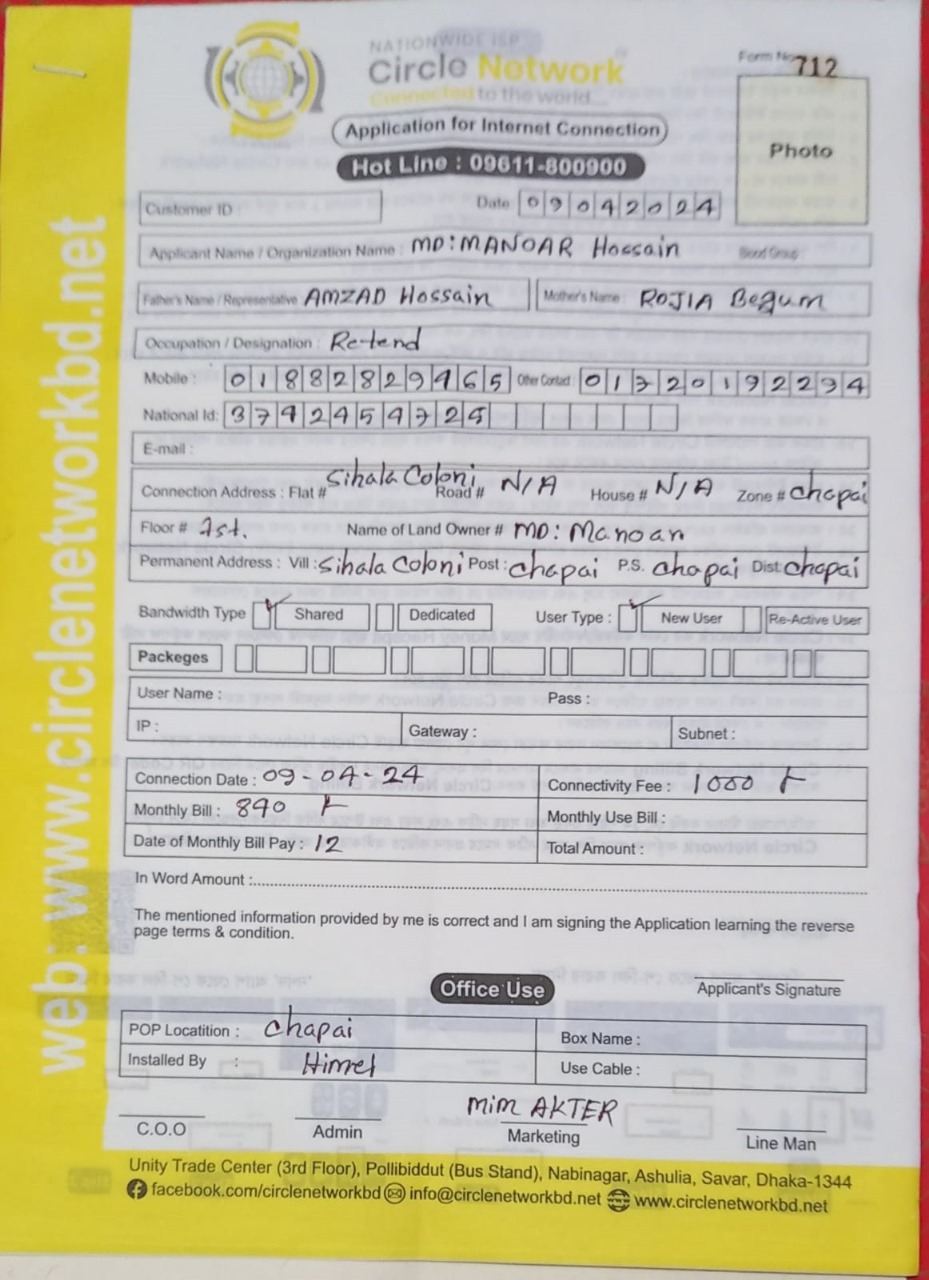 NATIONWIDE ISP
Circle Network
Connected to the world...
Form No 712
Application for Internet Connection
Photo
Hot Line : 09611-800900
Customer ID :
Date 09042024
Applicant Name / Organization Name : MD: MANOAR Hossain Blood Group :
Father's Name / Representative AMZAD Hossain Mother's Name : ROJIA Begum
Occupation / Designation :
Mobile : 01882829465 Other Contact :
National Id:
E-mail :
Connection Address : Flat # Sihala Coloni Road # N/A House # N/A Zone # chapai
Floor # Name of Land Owner # MD: Manoar
Permanent Address : Vill : Sihala Coloni Post : chapai P.S. chapai Dist: chapai
Bandwidth Type Shared Dedicated User Type : New User Re-Active User
Packeges
User Name : Pass :
IP : Gateway : Subnet :
Connection Date : 09-04-24 Connectivity Fee : 1000
Monthly Bill : 840 Monthly Use Bill :
Date of Monthly Bill Pay : 12 Total Amount :
In Word Amount :
The mentioned information provided by me is correct and I am signing the Application learning the reverse
page terms & condition.
Applicant's Signature
Office Use
POP Locatition : chapai Box Name :
Installed By : Himel Use Cable :
MIM AKTER
C.O.O Admin Marketing Line Man
Unity Trade Center (3rd Floor), Pollibiddut (Bus Stand), Nabinagar, Ashulia, Savar, Dhaka-1344
facebook.com/circlenetworkbd info@circlenetworkbd.net www.circlenetworkbd.net
web: www.circlenetworkbd.net